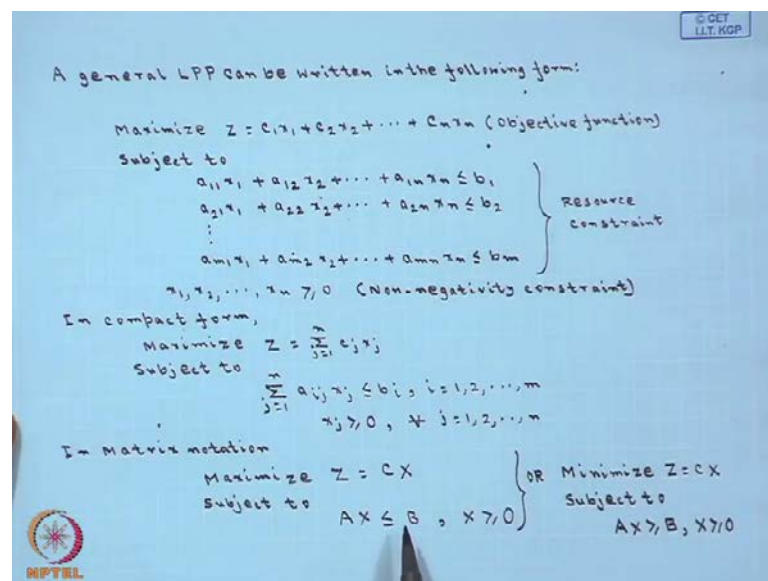 © CET
I.I.T. KGP
A general LPP can be written in the following form:
Maximize Z = c₁x₁ + c₂x₂ + ··· + cₙxₙ (Objective function)
Subject to
a₁₁x₁ + a₁₂x₂ + ··· + a₁ₙxₙ ≤ b₁
a₂₁x₁ + a₂₂x₂ + ··· + a₂ₙxₙ ≤ b₂
⋮
aₘ₁x₁ + aₘ₂x₂ + ··· + aₘₙxₙ ≤ bₘ
Resource
constraint
x₁, x₂, ···, xₙ ≥ 0 (Non-negativity constraint)
In compact form,
Maximize Z = ∑ⱼ₌₁ⁿ cⱼxⱼ
Subject to
∑ⱼ₌₁ⁿ aᵢⱼxⱼ ≤ bᵢ, i = 1, 2, ···, m
xⱼ ≥ 0, ∀ j = 1, 2, ··, n
In Matrix notation
Maximize Z = CX
Subject to
AX ≤ B, X ≥ 0
OR Minimize Z = CX
Subject to
AX ≥ B, X ≥ 0
NPTEL